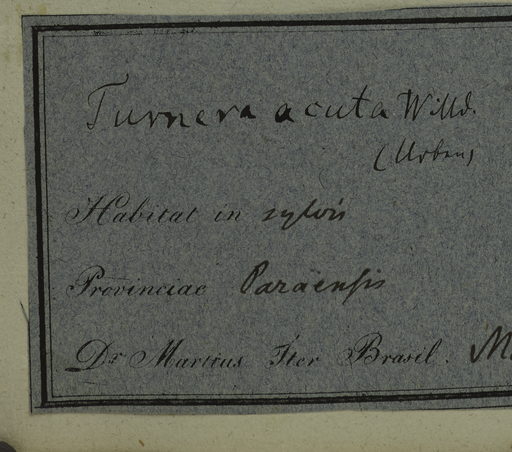 Turnera acuta Willd.
(Urban)
Habitat in sylvis
Provinciae Paraënsis
Dr. Martius Iter Brasil. M